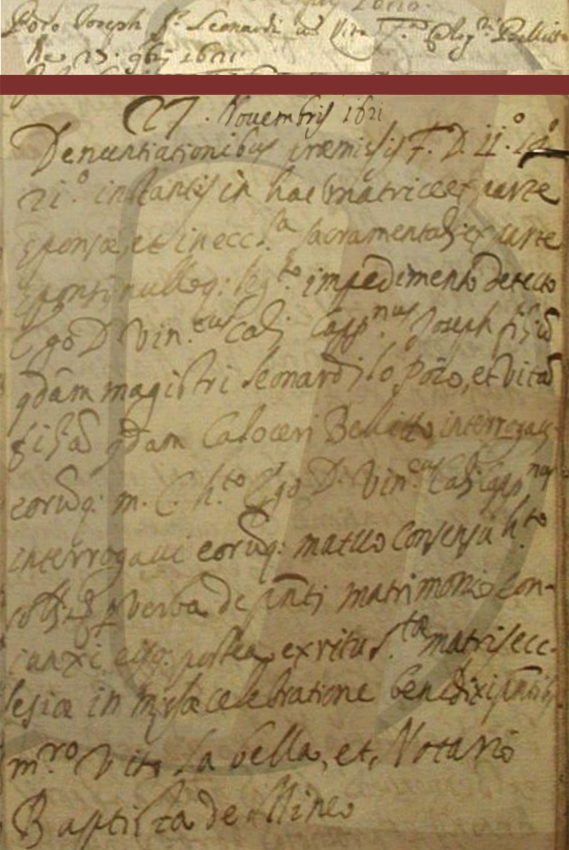 Pozo Joseph fs. Leonardi cu Vita fa. Calog.ri Bellitto
die 27. 9bris 1621
27. Novembris 1621
Denuntiationibus præmissis F. D. II.° Ia°
21.° instantis in hac matrice ex parte
sponsæ, et in ecc.a sacramentalj ex parte
sponsi nulloq: leg.to impedimento detecto
Ego D. Vin.tius Calj. Capp.nus Joseph filiū
qdam magistri Leonardj lo Pozo, et vitā
filiā qdam Caloceri Bellitto interrogavi
eorūq: m. C. h.to Ego D. Vin.tius Calj Capp.nus
interrogavi eorūq: mutuo consensu h.to
p verba de pnti matrimonio con-
iunxi eosq: postea ex ritu S.tæ matris ecc-
lesiæ in missæ celebratione benedixi pntibus
m.ro Vito la bella, et, Notario
Baptista de Mineo